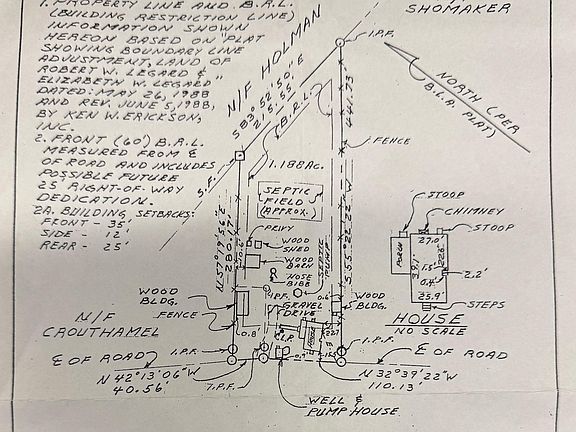 1. PROPERTY LINE AND B.R.L.
(BUILDING RESTRICTION LINE)
INFORMATION SHOWN
HEREON BASED ON "PLAT
SHOWING BOUNDARY LINE
ADJUSTMENT, LAND OF
ROBERT W. LEGARD &
ELIZABETH W. LEGARD"
DATED: MAY 26, 1988
AND REV. JUNE 5, 1988,
BY KEN W. ERICKSON,
INC.
2. FRONT (60') B.R.L.
MEASURED FROM ₵
OF ROAD AND INCLUDES
POSSIBLE FUTURE
25 RIGHT-OF-WAY
DEDICATION.
2A. BUILDING SETBACKS:
FRONT - 35'
SIDE - 12'
REAR - 25'
N/F HOLMAN
S 83°52'50" E
215.55'
(B.R.L.)
SHOMAKER
I.P.F.
NORTH (PER
B.L.A. PLAT)
441.73'
FENCE
1.188 Ac.
S.P.
SEPTIC
FIELD
(APPROX.)
280.17'
PRIVY
WOOD
SHED
WOOD
BARN
HOSE
BIBB
SEPTIC
PUMP
I.P.F.
GRAVEL
DRIVE
WOOD
BLDG.
FENCE
0.8'
0.6'
WOOD
BLDG.
N/F
CROUTHAMEL
₵ OF ROAD
I.P.F.
I.P.F.
₵ OF ROAD
N 42°13'06" W
40.56'
I.P.F.
N 32°39'22" W
110.13'
WELL &
PUMP HOUSE
STOOP
CHIMNEY
STOOP
PORCH
27.0'
2.2'
25.9'
STEPS
HOUSE
NO SCALE